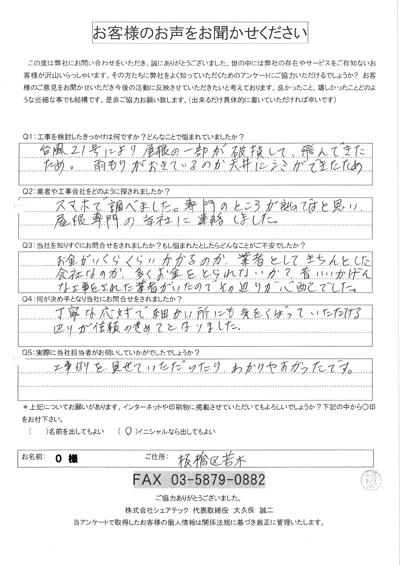 お客様のお声をお聞かせください
この度は弊社にお問い合わせをいただき、誠にありがとうございました。世の中には弊社の存在やサービスをご存知ないお
客様が沢山いらっしゃいます。その方たちに弊社をよく知っていただくためのアンケートにご協力いただけるでしょうか? お客
様のご意見をお聞かせいただき今後の活動に反映させていただきたいと考えております。良かったこと、嬉しかったことどのよ
うな些細な事でも結構です。是非ご協力お願い致します。(出来るだけ具体的に書いていただければ幸いです)
Q1:工事を検討したきっかけは何ですか?どんなことで悩まれていましたか?
台風21号により屋根の一部が破損して、飛んできた
ため。雨もりがおきているのか天井にシミができたため
Q2:業者や工事会社をどのように探されましたか?
スマホで調べました。専門のところが
と思い、
屋根専門の当社に連絡しました。
Q3:当社を知りすぐにお問合せをされましたか?もし悩まれたとしたらどんなことがご不安でしたか?
お金がいくらくらいかかるのか、業者としてきちんとした
会社なのか、多くお金をとられないか?昔いいかげん
な工事をされた業者がいたのでその辺りが心配でした。
Q4:何が決め手となり当社にお問合せをされましたか?
丁寧な応対で細かい所にも気をくばっていただける
辺りが信頼のきめてとなりました。
Q5:実際に当社担当者がお伺いしていかがでしたでしょうか?
工事例を見せていただいたり、わかりやすかったです。
*上記についてお願いがあります。インターネットや印刷物に掲載させていただいてもよろしいでしょうか?下記の中から〇印
をお付下さい。
( )名前を出してもよい (〇)イニシャルなら出してもよい
お名前: O 様 ご住所: 板橋区若木
FAX 03-5879-0882
ご協力ありがとうございました。
株式会社シェアテック 代表取締役 大久保 誠二
当アンケートで取得したお客様の個人情報は関係法規に基づき厳正に管理いたします。